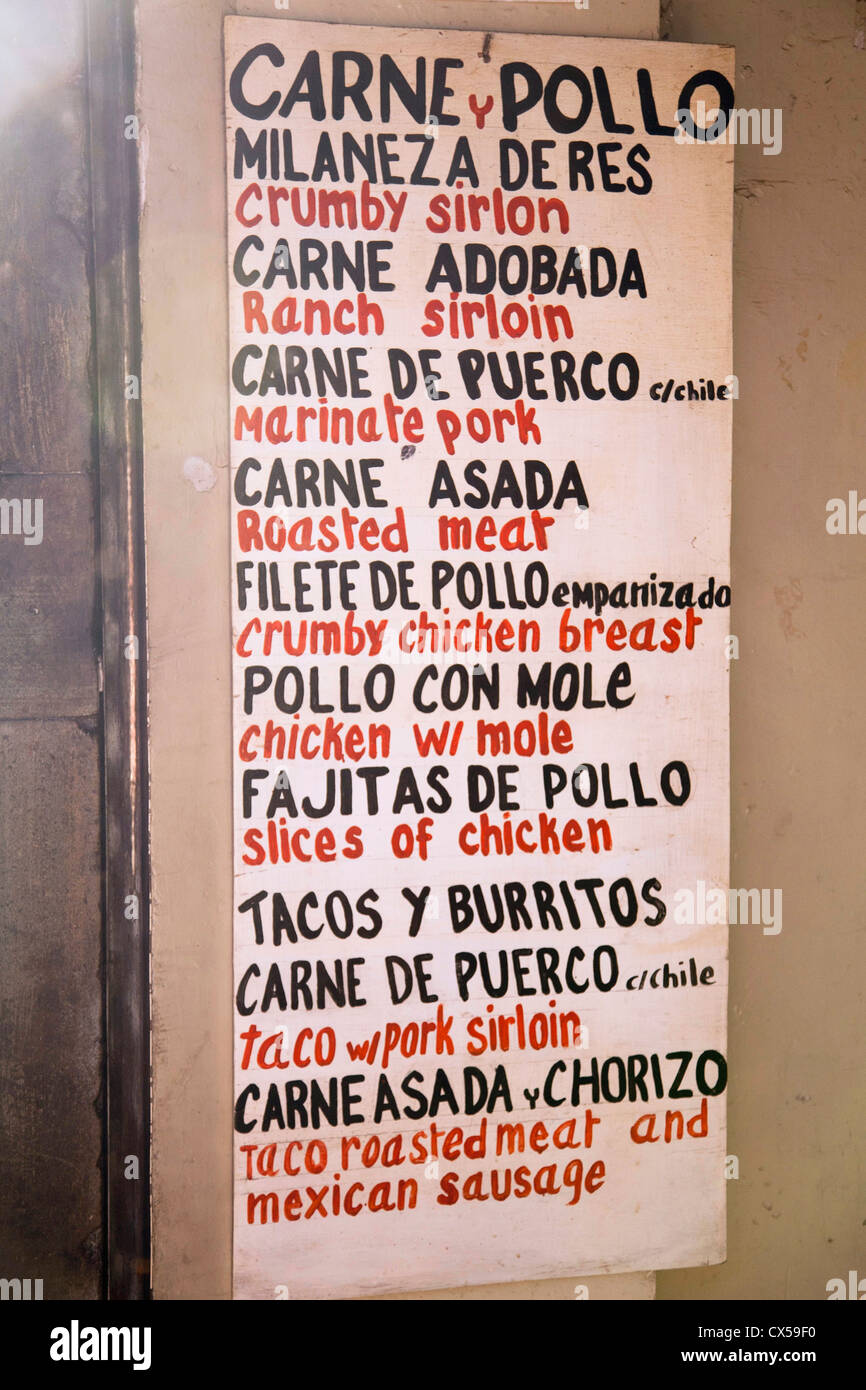 CARNE Y POLLO
MILANEZA DE RES
Crumby sirlon
CARNE ADOBADA
Ranch sirloin
CARNE DE PUERCO c/chile
Marinate pork
CARNE ASADA
Roasted meat
FILETE DE POLLO empanizado
crumby chicken breast
POLLO CON MOLe
chicken w/ mole
FAJITAS DE POLLO
slices of chicken
TACOS Y BURRITOS
CARNE DE PUERCO c/chile
taco w/pork sirloin
CARNE ASADA Y CHORIZO
Taco roasted meat and
mexican sausage
alamy
Image ID: CX59F0
www.alamy.com